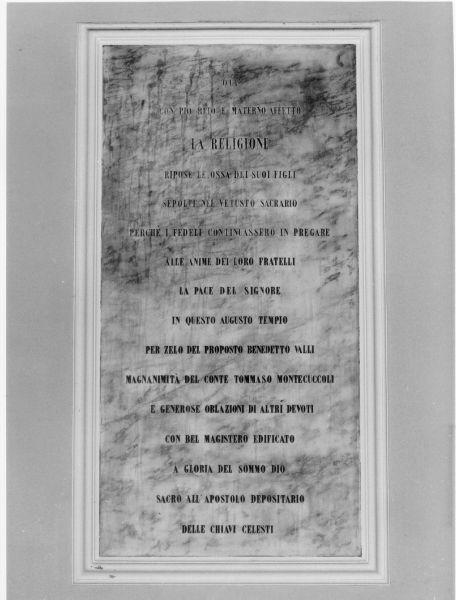 QUI
CON PIO RITO E MATERNO AFFETTO
LA RELIGIONE
RIPOSE LE OSSA DEI SUOI FIGLI
SEPOLTI NEL VETUSTO SACRARIO
PERCHÈ I FEDELI CONTINUASSERO IN PREGARE
ALLE ANIME DEI LORO FRATELLI
LA PACE DEL SIGNORE
IN QUESTO AUGUSTO TEMPIO
PER ZELO DEL PROPOSTO BENEDETTO VALLI
MAGNANIMITÀ DEL CONTE TOMMASO MONTECUCCOLI
E GENEROSE OBLAZIONI DI ALTRI DEVOTI
CON BEL MAGISTERO EDIFICATO
A GLORIA DEL SOMMO DIO
SACRO ALL'APOSTOLO DEPOSITARIO
DELLE CHIAVI CELESTI